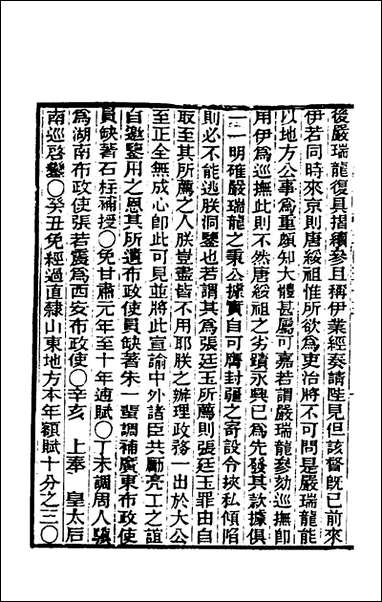 後嚴瑞龍復具摺續參且稱伊業經奏請陛見但該督旣已前來
伊若同時來京則唐綏祖惟所欲為吏治將不可問是嚴瑞龍能
以地方公事為重頗知大體甚屬可嘉若謂嚴瑞龍參劾巡撫卽
用伊為巡撫此則不然唐綏祖之劣蹟永興已為先發其款據俱
一一明確嚴瑞龍之秉公據實自可膺封疆之寄設令挾私傾陷
則必不能逃朕洞鑒也若謂其為張廷玉所薦則張廷玉罪由自
取至其所薦之人朕豈盡皆不用耶朕之辦理政務一出於大公
至正全無成心卽此可見並將此宣諭中外諸臣共勵亮工之誼
自邀鑒用之恩其所遺布政使員缺著朱一蜚調補廣東布政使
員缺著石柱補授〇免甘肅元年至十年逋賦〇丁未調周人驥
為湖南布政使張若震為西安布政使〇辛亥　上奉　皇太后
南巡啓鑾〇癸丑免經過直隸山東地方本年額賦十分之三〇